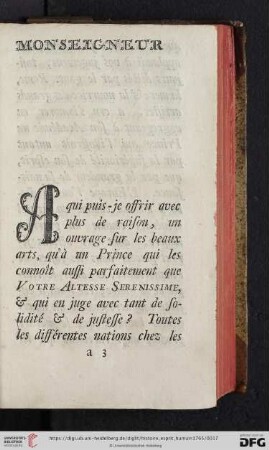 MONSEIGNEUR
A qui puis-je offrir avec
plus de raison, un
ouvrage sur les beaux
arts, qu'à un Prince qui les
connoît aussi parfaitement que
VOTRE ALTESSE SERENISSIME,
& qui en juge avec tant de so-
lidité & de justesse? Toutes
les différentes nations chez les
a 3
UNIVERSITÄTS-
BIBLIOTHEK
HEIDELBERG
© Universitätsbibliothek Heidelberg
Gefördert durch
DFG